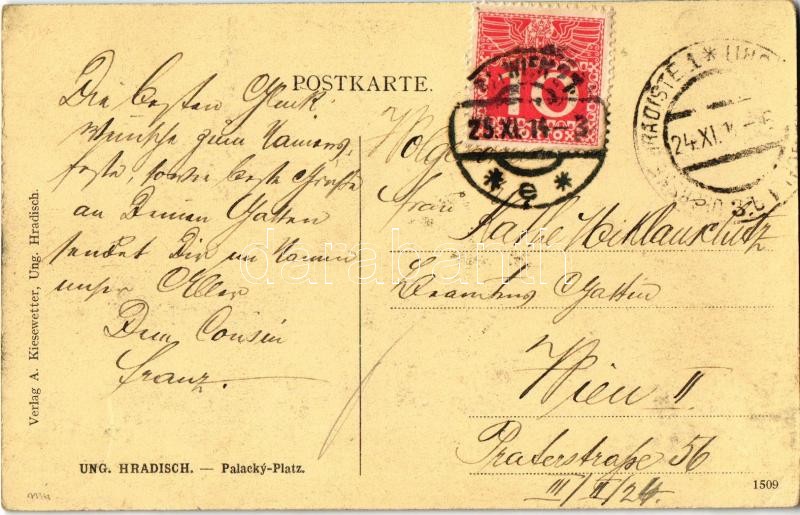 POSTKARTE.
Die besten Glück-
wünsche zum Namens-
feste, sowie beste Grüße
an Deinen Gatten
sendet Dir im Namen
unser Aller
Dein Cousin
Franz.
Verlag A. Kiesewetter, Ung. Hradisch.
UNG. HRADISCH. — Palacký-Platz.
10
WIEN
25.XI.14
* e *
HRADIŠTĚ 1 *
24.XI.14
Frau
Käthe
Beamtens Gattin
Wien II
Praterstraße 56
III/II/24.
1509
darabanth